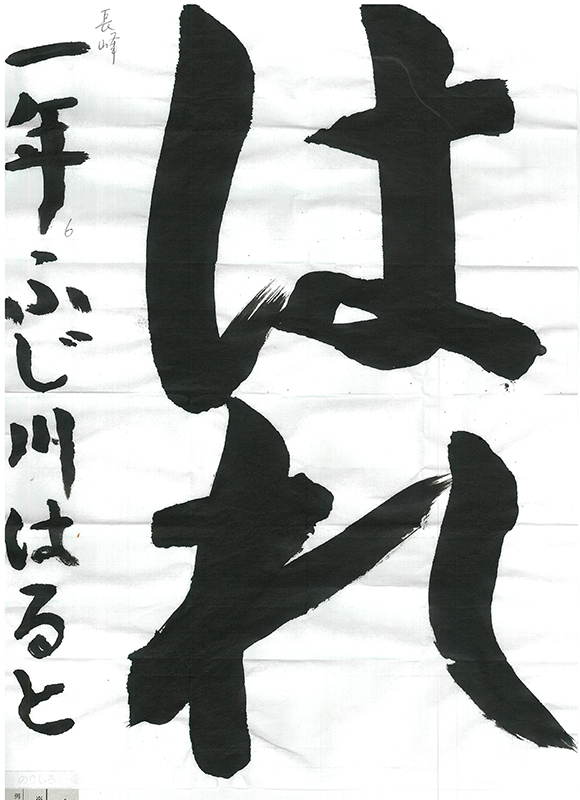 はれ
長峰
一年ふじ川はると
6